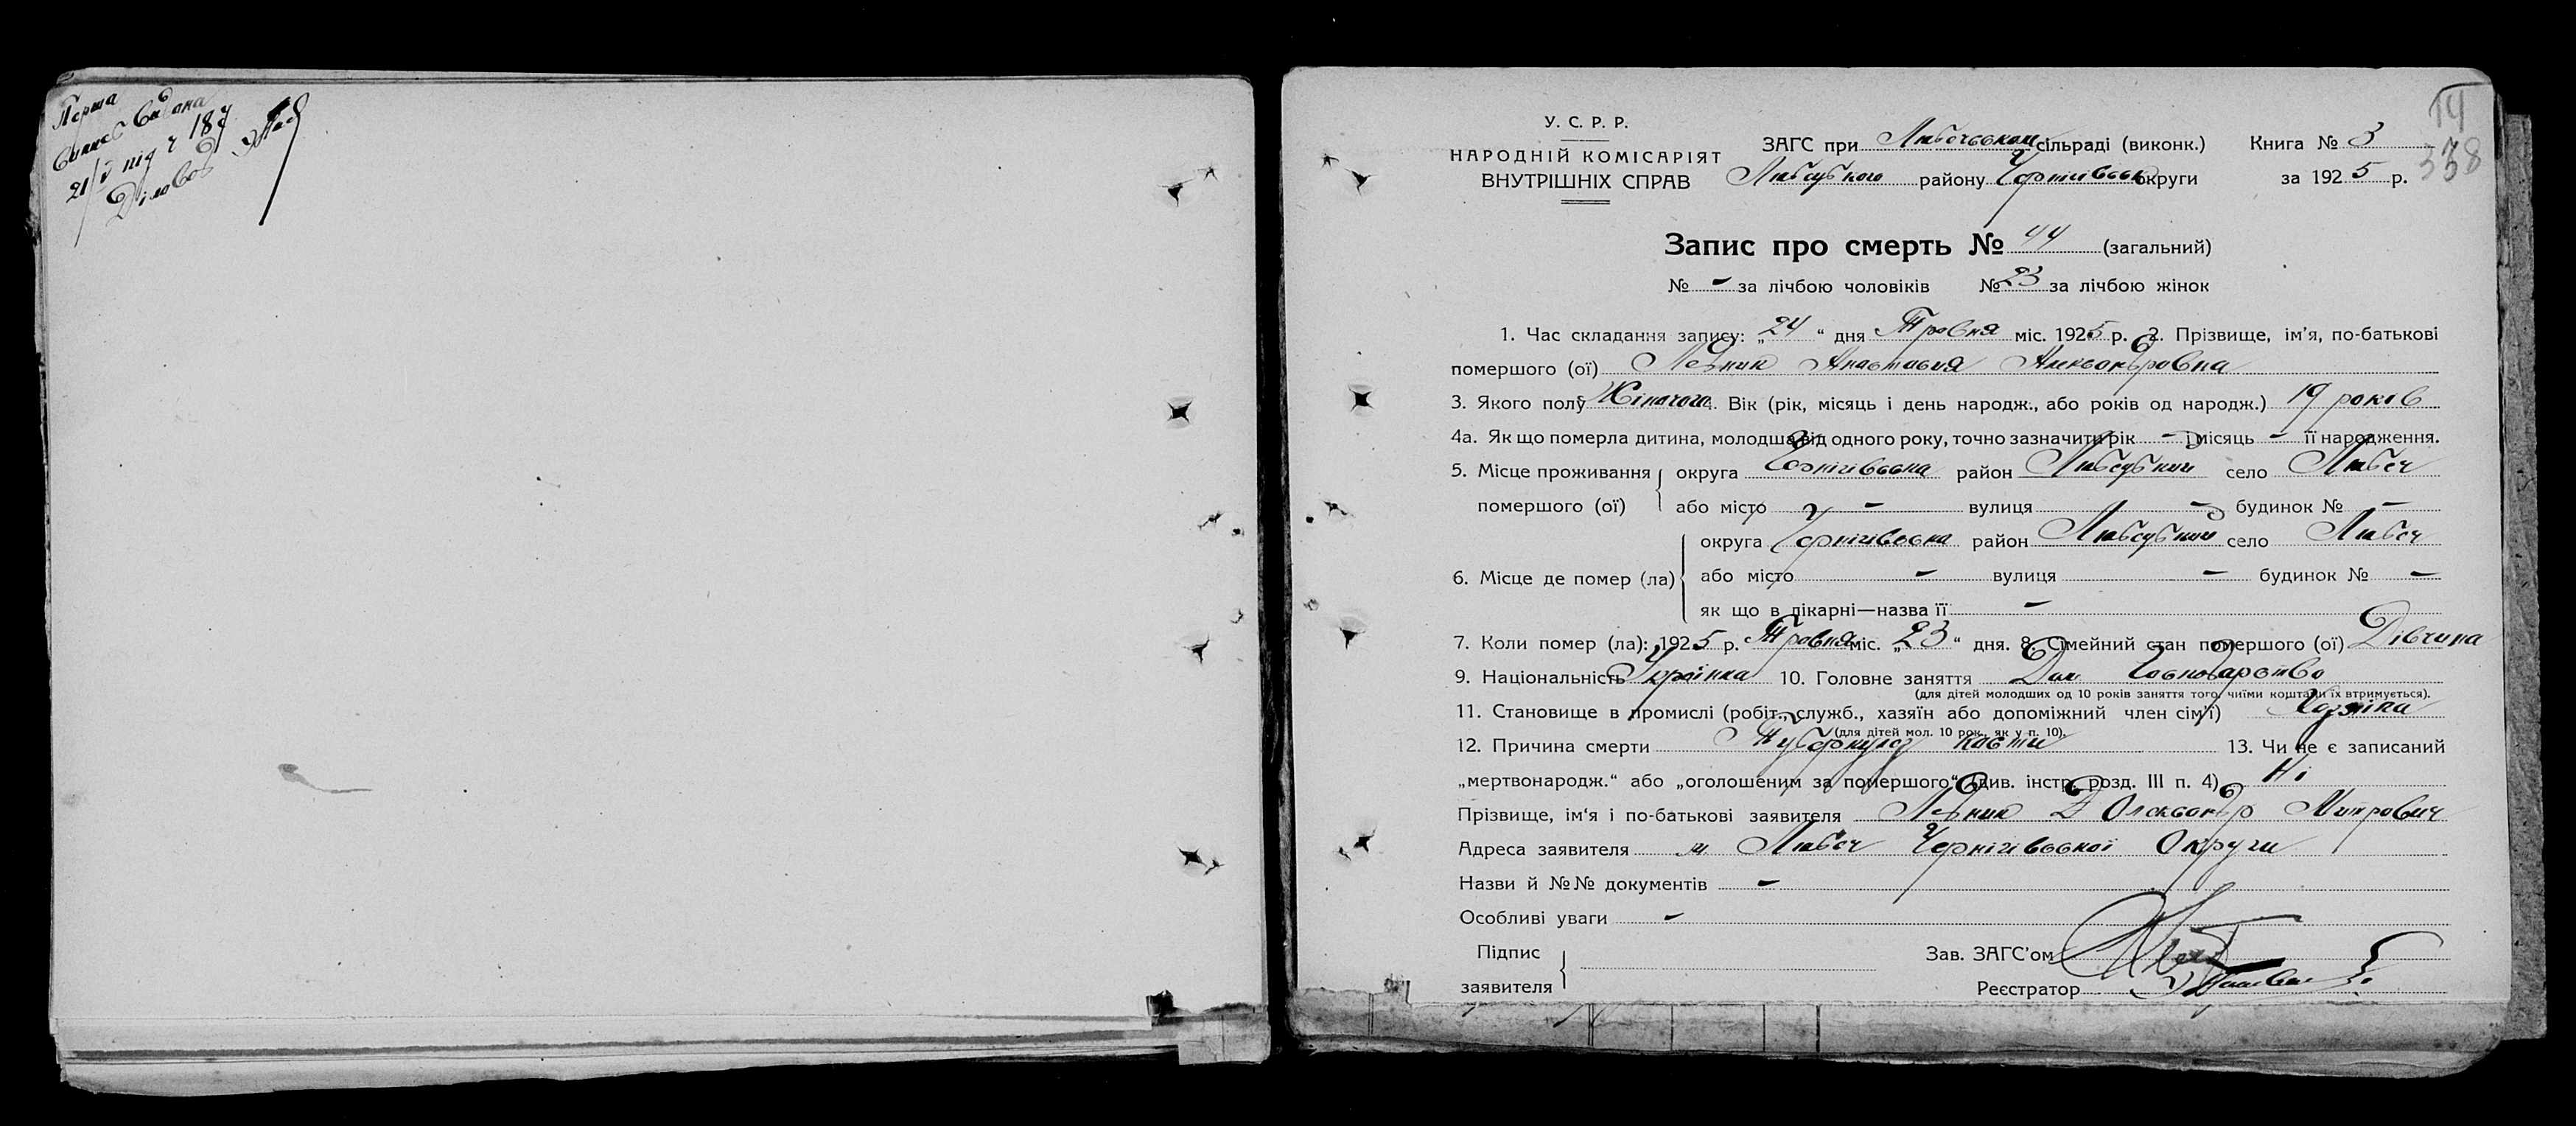 Перша
21/V під ч 187
Діловод
14
338
У. С. Р. Р.
НАРОДНІЙ КОМІСАРІЯТ
ВНУТРІШНІХ СПРАВ
ЗАГС при Любечськом сільраді (виконк.) Книга № 3
району Чернігівськ округи за 1925 р.
Запис про смерть № 44 (загальний)
№ - за лічбою чоловіків № 23 за лічбою жінок
1. Час складання запису: „24“ дня Травня міс. 1925 р. 2. Прізвище, ім’я, по-батькові
помершого (ої) Анастасия Александровна
3. Якого полу Жіночого 4. Вік (рік, місяць і день народж., або років од народж.) 19 років
4а. Як що померла дитина, молодша від одного року, точно зазначити рік - і місяць - її народження.
5. Місце проживання округа Чернігівська район село Любеч
помершого (ої) або місто - вулиця - будинок № -
округа Чернігівська район село Любеч
6. Місце де помер (ла) або місто - вулиця - будинок № -
як що в лікарні—назва її -
7. Коли помер (ла): 1925 р. Травня міс. „23“ дня. 8. Сімейний стан помершого (ої) Дівчина
9. Національність Українка 10. Головне заняття Дом
(для дітей молодших од 10 років заняття того, чиїми коштами їх втримується).
11. Становище в промислі (робіт., служб., хазяїн або допоміжний член сім’ї)
(для дітей мол. 10 рок. як у п. 10).
12. Причина смерти Туберкульоз кости 13. Чи не є записаний
„мертвонародж.“ або „оголошеним за помершого“ (див. інстр. розд. III п. 4) Ні
Прізвище, ім‘я і по-батькові заявителя Олександр
Адреса заявителя м Любеч Чернігівської Округи
Назви й №№ документів -
Особливі уваги -
Підпис
заявителя
Зав. ЗАГС’ом
Реєстратор